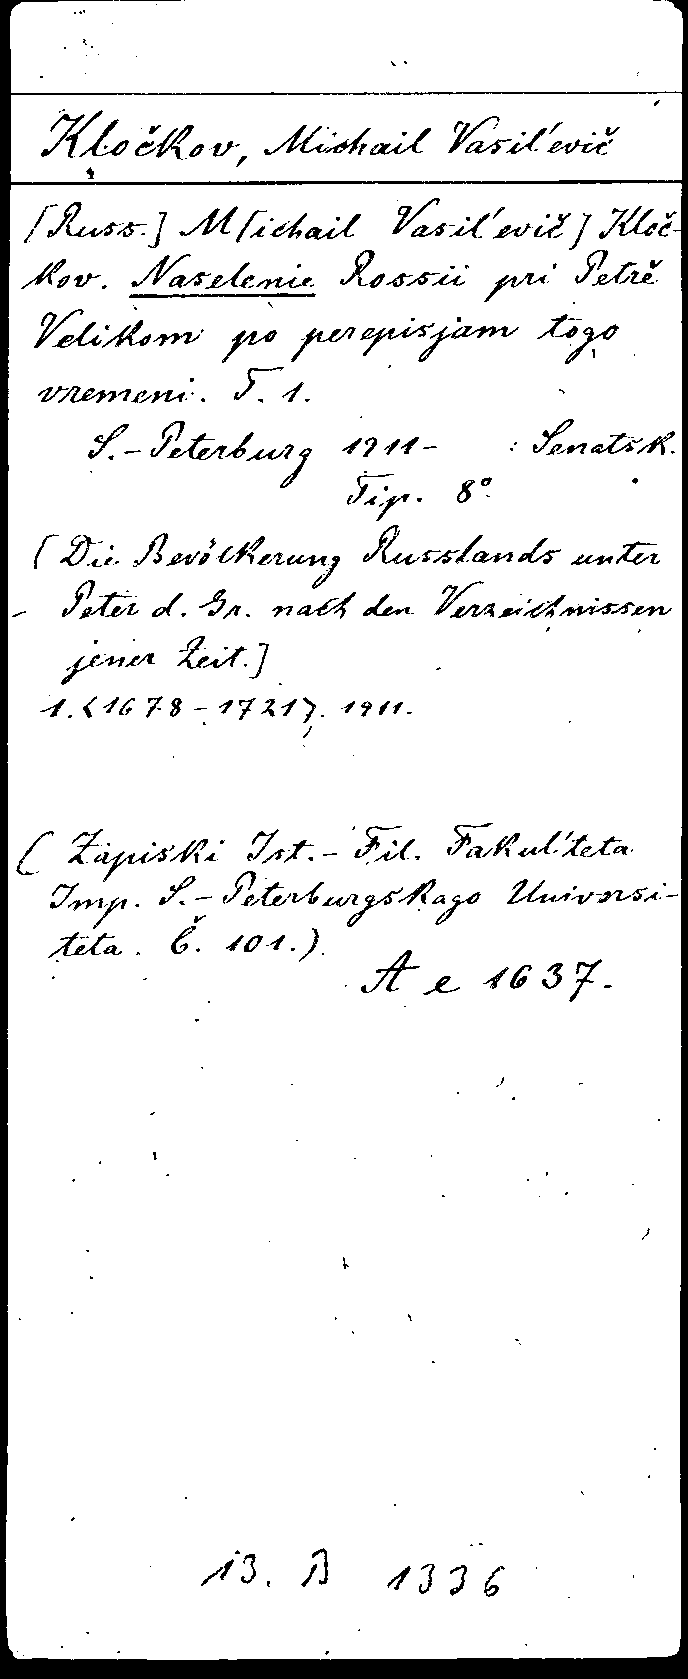 Kločkov, Michail Vasil'evič
[Russ.] M[ichail Vasil'evič] Kloč-
kov. Naselenie Rossii pri Petrě
Velikom po perepisjam togo
vremeni. T. 1.
S.-Peterburg 1911- : Senatsk.
Tip. 8°.
[Die Bevölkerung Russlands unter
Peter d. Gr. nach den Verzeichnissen
jener Zeit.]
1. <1678-1721>. 1911.
(Zapiski Ist.-Fil. Fakul'teta
Imp. S.-Peterburgskago Universi-
teta. Č. 101.)
A e 1637.
13. B 1336